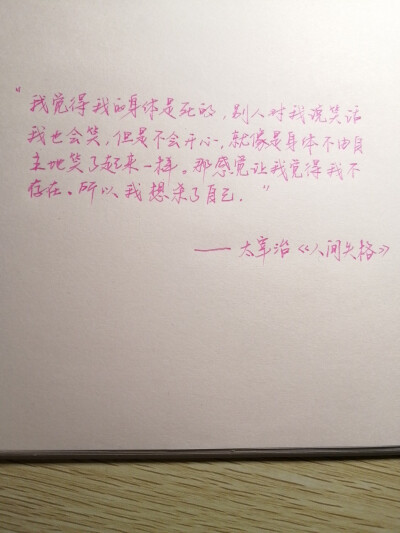 "我觉得我的身体是死的，别人对我说笑话
我也会笑，但是不会开心，就像是身体不由自
主地笑了起来一样。那感觉让我觉得我不
存在。所以我想杀了自己."
——太宰治《人间失格》